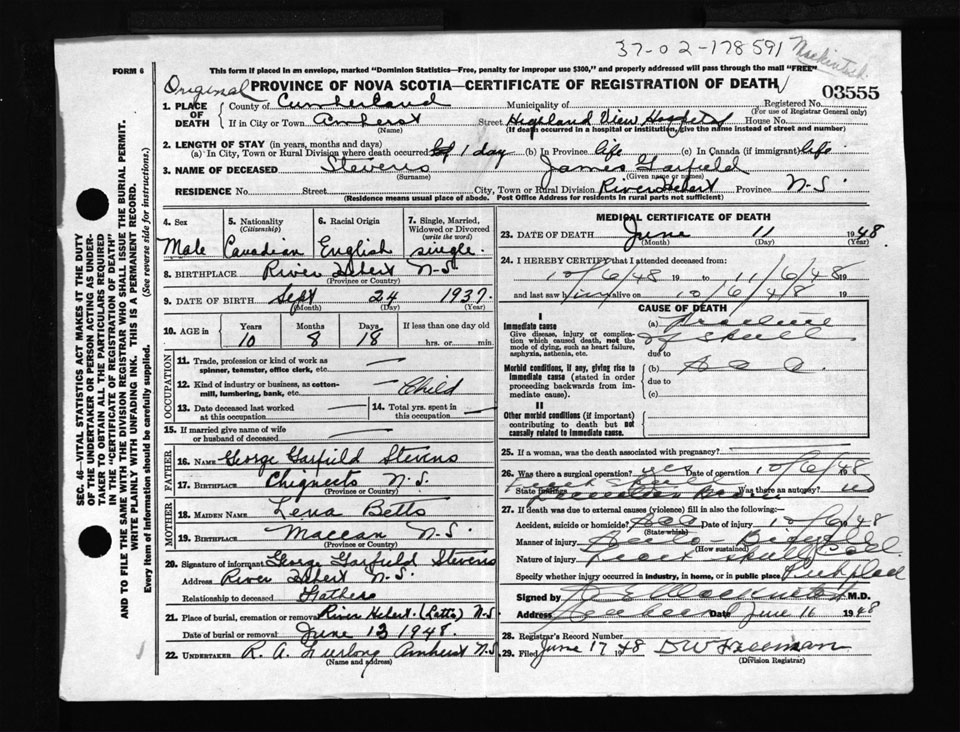 37-02-178591
FORM 6
This form if placed in an envelope, marked "Dominion Statistics—Free, penalty for improper use $300," and properly addressed will pass through the mail "FREE"
Original PROVINCE OF NOVA SCOTIA—CERTIFICATE OF REGISTRATION OF DEATH
03555
1. PLACE OF DEATH County of Cumberland Municipality of Registered No.
(For use of Registrar General only)
If in City or Town Amherst Street Highland View Hospital House No.
(Name) (If death occurred in a hospital or institution, give the name instead of street and number)
2. LENGTH OF STAY (in years, months and days)
(a) In City, Town or Rural Division where death occurred 1 day (b) In Province life (c) In Canada (if immigrant) life.
3. NAME OF DECEASED Stevens James Garfield
(Surname) (Given name or names)
RESIDENCE No. Street City, Town or Rural Division River Hebert Province N.S.
(Residence means usual place of abode. Post Office Address for residents in rural parts not sufficient)
4. Sex 5. Nationality 6. Racial Origin 7. Single, Married,
(Citizenship) Widowed or Divorced
(write the word)
Male Canadian English single.
8. BIRTHPLACE River Hebert N-S.
(Province or Country)
9. DATE OF BIRTH Sept 24 1937.
(Month) (Day) (Year)
10. AGE in Years Months Days If less than one day old
10 8 18 hrs. or min.
OCCUPATION
11. Trade, profession or kind of work as
spinner, teamster, office clerk, etc.
12. Kind of industry or business, as cotton-
mill, lumbering, bank, etc. Child
13. Date deceased last worked 14. Total yrs. spent in
at this occupation in this occupation
15. If married give name of wife
or husband of deceased
FATHER
16. NAME George Garfield Stevens
17. BIRTHPLACE Chignecto N.S.
(Province or Country)
MOTHER
18. MAIDEN NAME Lena Betts
19. BIRTHPLACE Maccan N-S
(Province or Country)
20. Signature of informant George Garfield Stevens
Address River Hebert N-S.
Relationship to deceased Father
21. Place of burial, cremation or removal River Hebert. N-S.
Date of burial or removal June 13 1948.
22. UNDERTAKER R. A. Furlong Amherst N.S.
(Name and address)
MEDICAL CERTIFICATE OF DEATH
23. DATE OF DEATH June 11 1948.
(Month) (Day) (Year)
24. I HEREBY CERTIFY that I attended deceased from:
10/6/48 19 to 11/6/48 19
and last saw him alive on 10/6/48 19
CAUSE OF DEATH
I
Immediate cause (a) Fracture
Give disease, injury or complica-
tion which caused death, not the
mode of dying, such as heart failure,
asphyxia, asthenia, etc.
of skull
due to
Morbid conditions, if any, giving rise to
immediate cause (stated in order
proceeding backwards from im-
mediate cause).
(b)
due to
(c)
II
Other morbid conditions (if important)
contributing to death but not
causally related to immediate cause.
25. If a woman, was the death associated with pregnancy?
26. Was there a surgical operation? yes Date of operation 10/6/48
State findings Was there an autopsy? no
27. If death was due to external causes (violence) fill in also the following:—
Accident, suicide or homicide? Date of injury 10/6/1948
(State which)
Manner of injury
(How sustained)
Nature of injury skull
Specify whether injury occurred in industry, in home, or in public place
Signed by M.D.
Address Date June 16 1948
28. Registrar's Record Number
29. Filed June 17 1948 DW Freeman
(Division Registrar)
SEC. 46—VITAL STATISTICS ACT MAKES IT THE DUTY
OF THE UNDERTAKER OR PERSON ACTING AS UNDER-
TAKER TO OBTAIN ALL THE PARTICULARS REQUIRED
IN THE "CERTIFICATE OF REGISTRATION OF DEATH"
AND TO FILE THE SAME WITH THE DIVISION REGISTRAR WHO SHALL ISSUE THE BURIAL PERMIT.
WRITE PLAINLY WITH UNFADING INK. THIS IS A PERMANENT RECORD.
Every item of Information should be carefully supplied. (See reverse side for instructions.)